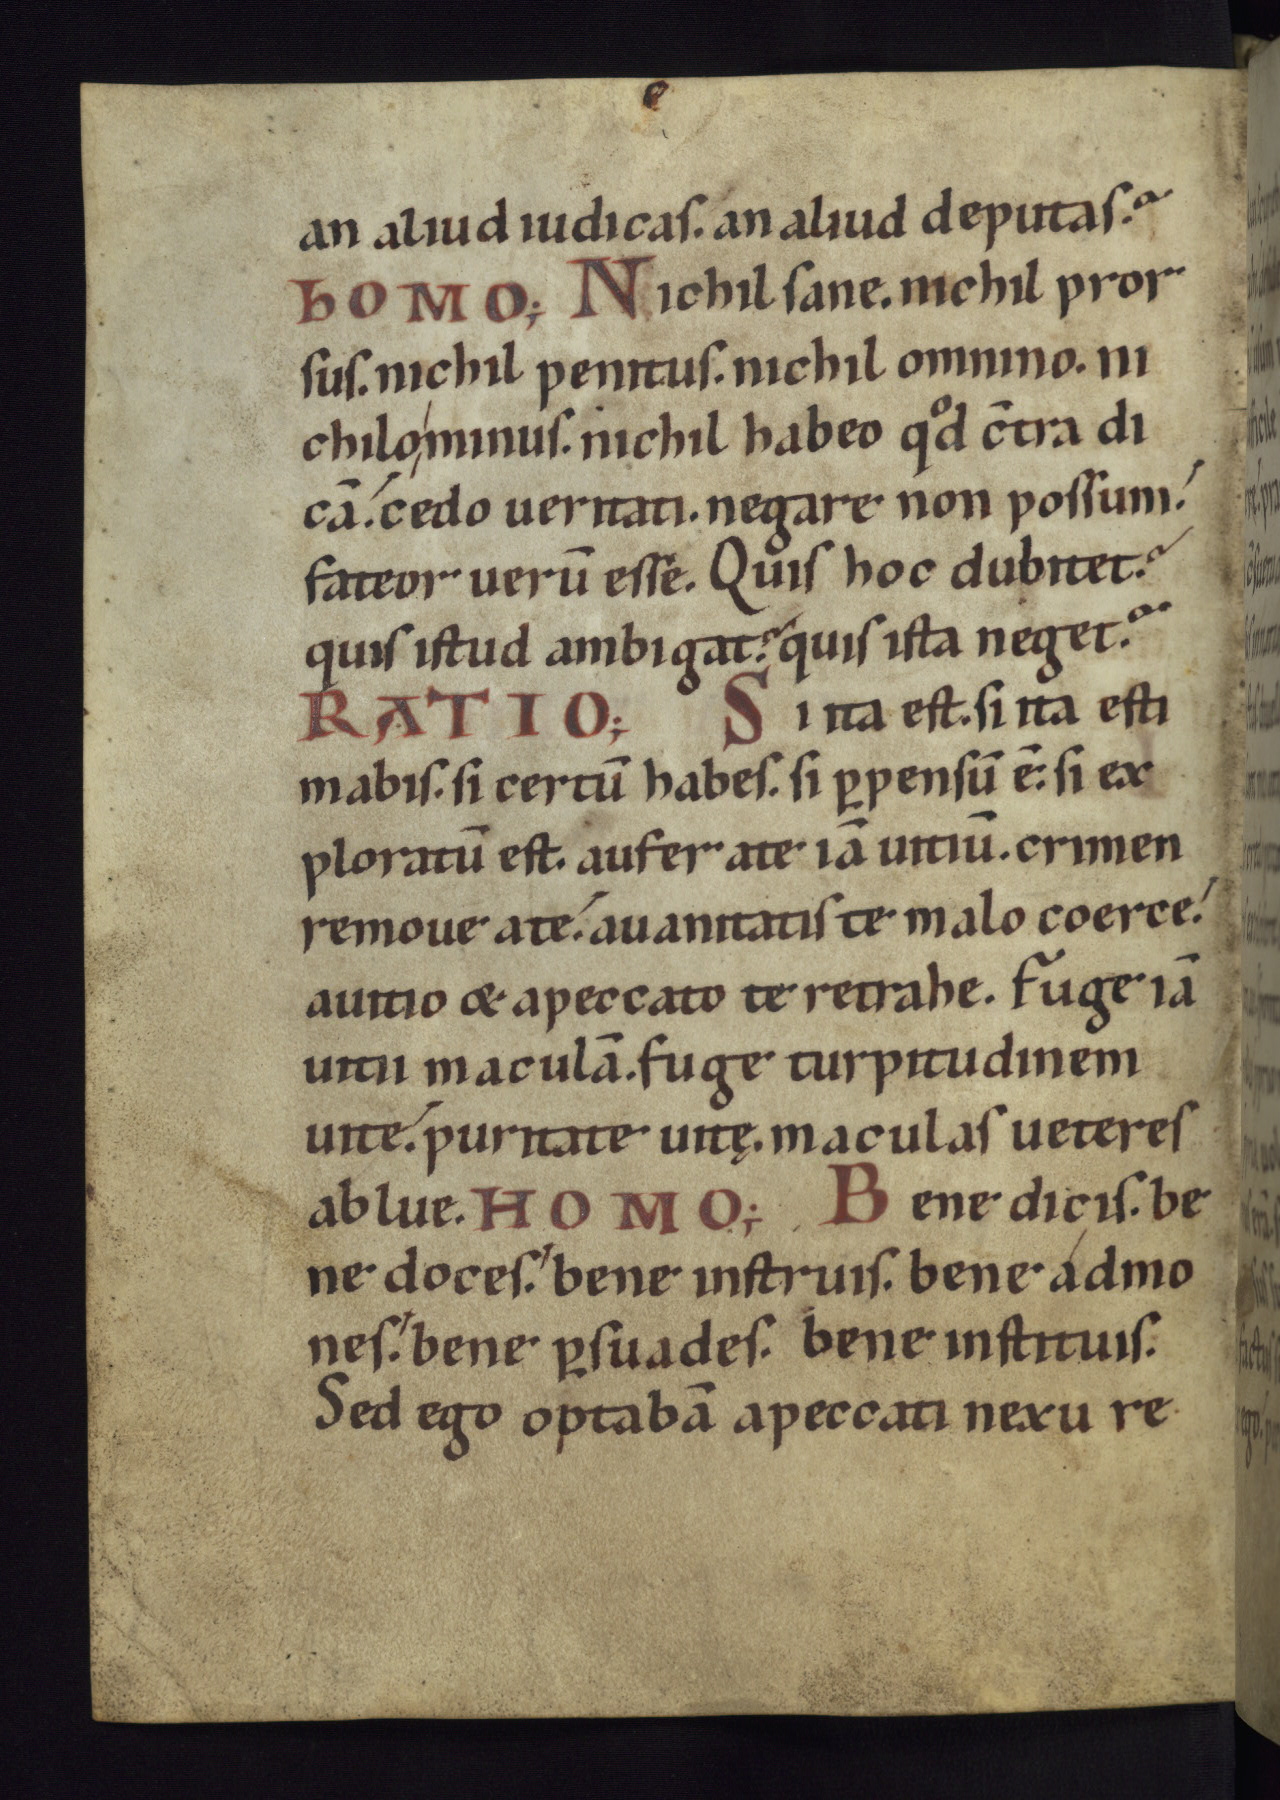 an aliud iudicas. an aliud deputas.
hOMO; Nichil sane. nichil pror
sus. nichil penitus. nichil omnino. ni
chilominus. nichil habeo qͦd c̄tra di
cā. cedo ueritati. negare non possum.
fateor uerū esse. Quis hoc dubitet.
quis istud ambigat. quis ista neget.
RATIO; Si ita est. si ita esti
mabis. si certū habes. si ꝑpensū ē. si ex
ploratū est. aufer ate iā uitiū. crimen
remoue ate. auanitatis te malo coerce.
auitio & apeccato te retrahe. Fuge iā
uitii maculā. fuge turpitudinem
uite. puritate uitę. maculas ueteres
ablue. HOMO; Bene dicis. be
ne doces. bene instruis. bene admo
nes. bene ꝑsuades. bene instituis.
Sed ego optabā apeccati nexu re